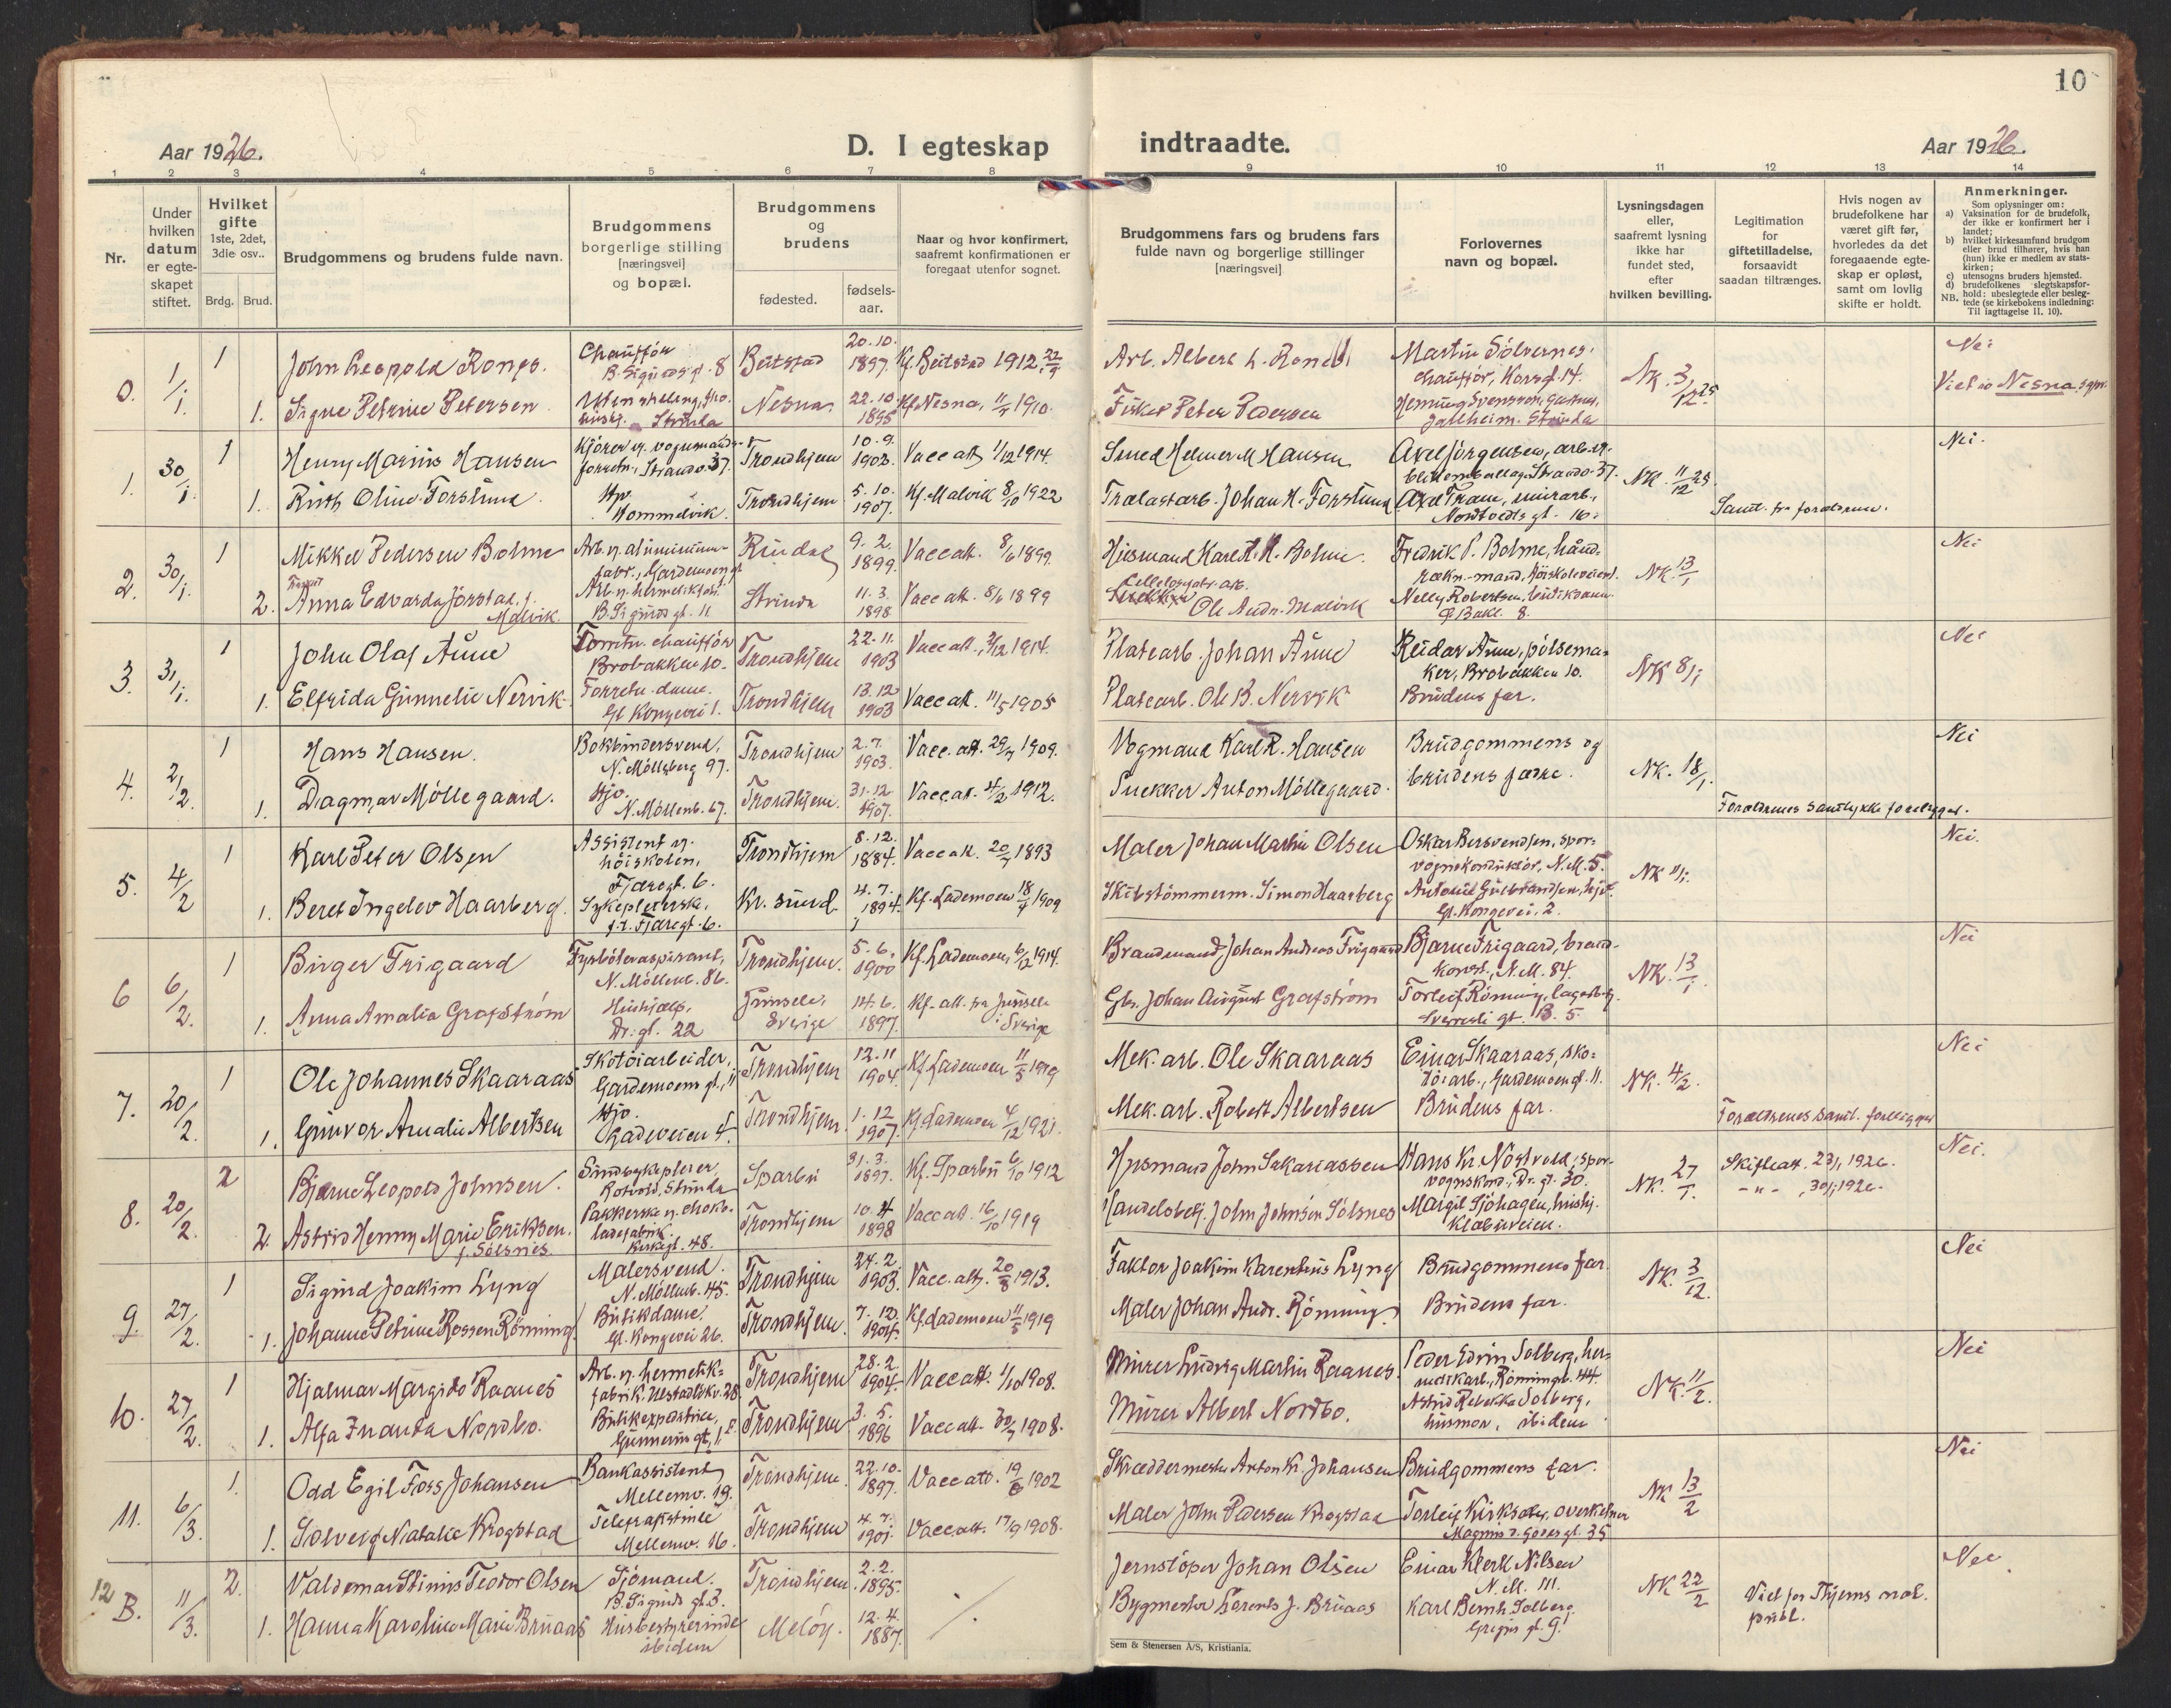 10
Aar 1926.
D. I egteskap
indtraadte.
Aar 1926.
1 2 3 4 5 6 7 8 9 10 11 12 13 14
Nr.
Under hvilken datum er egteskapet stiftet.
Hvilket gifte 1ste, 2det, 3die osv..
Brdg. Brud.
Brudgommens og brudens fulde navn.
Brudgommens borgerlige stilling [næringsvei] og bopæl.
Brudgommens og brudens
fødested.
fødsels-aar.
Naar og hvor konfirmert, saafremt konfirmationen er foregaat utenfor sognet.
Brudgommens fars og brudens fars fulde navn og borgerlige stillinger [næringsvei]
Forlovernes navn og bopæl.
Lysningsdagen eller, saafremt lysning ikke har fundet sted, efter hvilken bevilling.
Legitimation for giftetilladelse, forsaavidt saadan tiltrænges.
Hvis nogen av brudefolkene har været gift før, hvorledes da det foregaaende egteskap er opløst, samt om lovlig skifte er holdt.
Anmerkninger.
Som oplysninger om:
a) Vaksination for de brudefolk, der ikke er konfirmert her i landet;
b) hvilket kirkesamfund brudgom eller brud tilhører, hvis han (hun) ikke er medlem av statskirken;
c) utensogns bruders hjemsted.
d) brudefolkenes slegtskapsforhold: ubeslegtede eller beslegtede (se kirkebokens indledning: Til iagttagelse II. 10).
NB.
0. 1/1. 1 John Leopold Rones. Chauffør B. Sigurds gt. 8 Beitstad 20.10. 1897. Kf. Beitstad 1912, 22/9 Arb. Albert L. Rones Martin Sölvernes, chauffør, Korsg. 14. NK. 3/12 25 Nei
1. Signe Petrine Petersen Strinda Nesna 22.10. 1895 Kf. Nesna, 1910. Fisker Peter Pedersen Strinda Viet i Nesna
1. 30/1. 1 Henry Marius Hansen Strandv. 37. Trondhjem 10.9. 1903. Vacc att 1/12 1914. Smed Helmer M Hansen Axel Jörgensen, Strandv. 37. NK. 11/12 25 Nei.
1. Ruth Oline Forslund. Hommelvik. Trondhjem 5.10. 1907. Kf. Malvik 8/10 1922 Trælastarb. Johan H. Forslund Axel Tranu, murarb., gt. 16. Samt. fra foreldrene.
2. 30/1. 1 Mikkel Pedersen Bolme Arb. v. aluminium-fabr., Gardemoensgt Rindal 9.2. 1899. Vacc att. 8/6 1899. Husmand Karl H. Bolme. Fredrik P. Bolme, NK. 13/1 Nei
2. Anna Edvarda Jörstad, f. Malvik. Arb. v. hermetikfab. B. Sigurds gt. 11 Strinda 11.3. 1898 Vacc att. 8/6 1899 Ole Andr. Malvik Nelly Robertsen, Bakl. 8.
3. 31/1. 1 John Olaf Aune chauffør Brobakken 10. Trondhjem 22.11. 1903 Vacc att., 1914. Platearb. Johan Aune Reidar Aune, pölsemaker, Brobakken 10. NK 8/1 Nei
1. Elfrida Gunnelie Nervik Forretn. dame. Gl Kongevei 1. Trondhjem 13.12 1903 Vacc att. 11/5 1905 Platearb. Ole B. Nervik Brudens far.
4. 2/2. 1 Hans Hansen. Bokbindersvend, N. Möllenberg 97. Trondhjem 2.7. 1903. Vacc. att. 29/7 1909. Vognmand Karl R. Hansen Brudgommens og NK. 18/1. Nei
1. Dagmar Möllegaard. Hjo. N. Möllenb. 67. Trondhjem. 31.12 1907. Vacc att. 4/2 1912. Snekker Anton Möllegaard. brudens fædre. Foreldrenes samtykke foreligger.
5. 4/2 1 Karl Peter Olsen Assistent v. höiskolen, Fjæregt. 6. Trondhjem 8.12. 1884. Vacc att. 20/7 1893 Maler Johan Martin Olsen Oskar Bersvendsen, sporvognskonduktör, N.M. 5. NK 11/1. Nei.
1. Beret Ingelev Haarberg. Sykepleierske, Fjæregt. 6. Kr. sund. 4.7. 1894. Kf. Lademoen 18/4 1909 Skibstömmerm. Simon Haarberg Gulbrandsen, hjo. Gl. Kongevei. 2.
6 6/2. 1 Birger Trigaard Fyrböteraspirant, N. Möllenb. 86. Trondhjem. 5.6. 1900 Kf. Lademoen, 6/12 1914. Brandmand Johan Andreas Trigaard Bjarne Trigaard, brandkonst., N.M. 84. NK. 13/1. Nei
1. Anna Amalia Grafström Hushjælp, Dr. gt. 22 Junsele, Sverige 14.6. 1897. Kf. att. fra Junsele i Sverige Gbr. Johan August Grafström Torleif Rönning, Sverresli gt. B. 5.
7. 20/2. 1 Ole Johannes Skaaraas Skotöiarbeider, Gardemoens gt., 11 Trondhjem 12.11 1904. Kf. Lademoen 11/5 1919 Mek. arb. Ole Skaaraas Einar Skaaraas, skotöiarb., Gardemoen gt. 11. NK. 4/2. Nei
1. Gunvor Amalie Albertsen Hjo. Ladeveien 4. Trondhjem. 1.12 1907. Kf. Lademoen 4/12 1921. Mek. arb. Robert Albertsen Brudens far. Foreldrenes samt. foreligger
8. 20/2. 2 Bjarne Leopold Johnsen. Sindssykepleier, Rotvold, Strinda Sparbu 31.3. 1897. Kf. Sparbu 6/10 1912 Husmand John Sakariassen Hans Kr. Nöstvold, sporvognskond., Dr. gt. 30. NK. 27/1. Skifteatt. 23/1 1926. Nei.
2. Astrid Henny Marie Eriksen. f. Sölsnes Pakkerske v. chokoladefabrik. Kirkegt. 48. Trondhjem 10.4 1898 Vacc att. 16/10 1919 Handelsbetj. John Johnsen Sölsnes Margit Sjöhagen, hushj. Klæbuveien. -"- , 30/1 1926.
9 27/2. 1 Sigurd Joakim Lyng Malersvend. N. Möllenb. 45. Trondhjem 24.2. 1903. Vacc. att. 20/8 1913. Faktor Joakim Karentius Lyng Brudgommens far. NK. 3/12. Nei
1. Johanne Petrine Rossen Rönning. Butikdame, Gl. Kongevei 26. Trondhjem. 7.12. 1904. Kf. Lademoen 11/5 1919 Maler Johan Andr. Rönning. Brudens far.
10. 27/2. 1 Hjalmar Margido Raanes Arb. v. hermetikfabrik. 28 Trondhjem 28.2. 1904. Vacc att. 1/10 1908. Murer Ludvig Martin Raanes. Peder Edvin Solberg, hermetikarb., Rönningsb. 44. NK. 11/2. Nei
1. Alfa Nordbo. Gunnerus gt. 1. Trondhjem 3.5. 1896 Vacc att. 30/7 1908. Murer Albert Nordbo. Astrid Rebekka Solberg, husmor, ibidem
11. 6/3. 1. Odd Egil Foss Johansen Bankassistent, Mellemv. 19. Trondhjem. 22.10. 1897. Vacc att. 19/6 1902 Skræddermester Anton Kr. Johansen Brudgommens far. NK 13/2 Nei
1. Solveig Natalie Krogstad Telegrafistinde Mellemv. 16. Trondhjem 4.7. 1901. Vacc. att. 17/9 1908. Maler John Pedersen Krogstad Torleif overkelner Magnus d. Godes gt. 35
12 B. 11/3. 2. Valdemar Stinius Teodor Olsen Sjömand. B. Sigurds gt. 3. Trondhjem. 2.2. 1895. Jernstöper Johan Olsen Einar Klerk Nilsen N.M. 111. NK 22/2 Viet for Thjems not. publ. Nei
1. Hanna Karoline Marie Bruaas Husbestyrerinde ibidem Melöy. 12.4. 1887. Bygmester Lorents J. Bruaas Karl Bernh. Solberg. gt. 9.
Sem & Stenersen A/S, Kristiania.